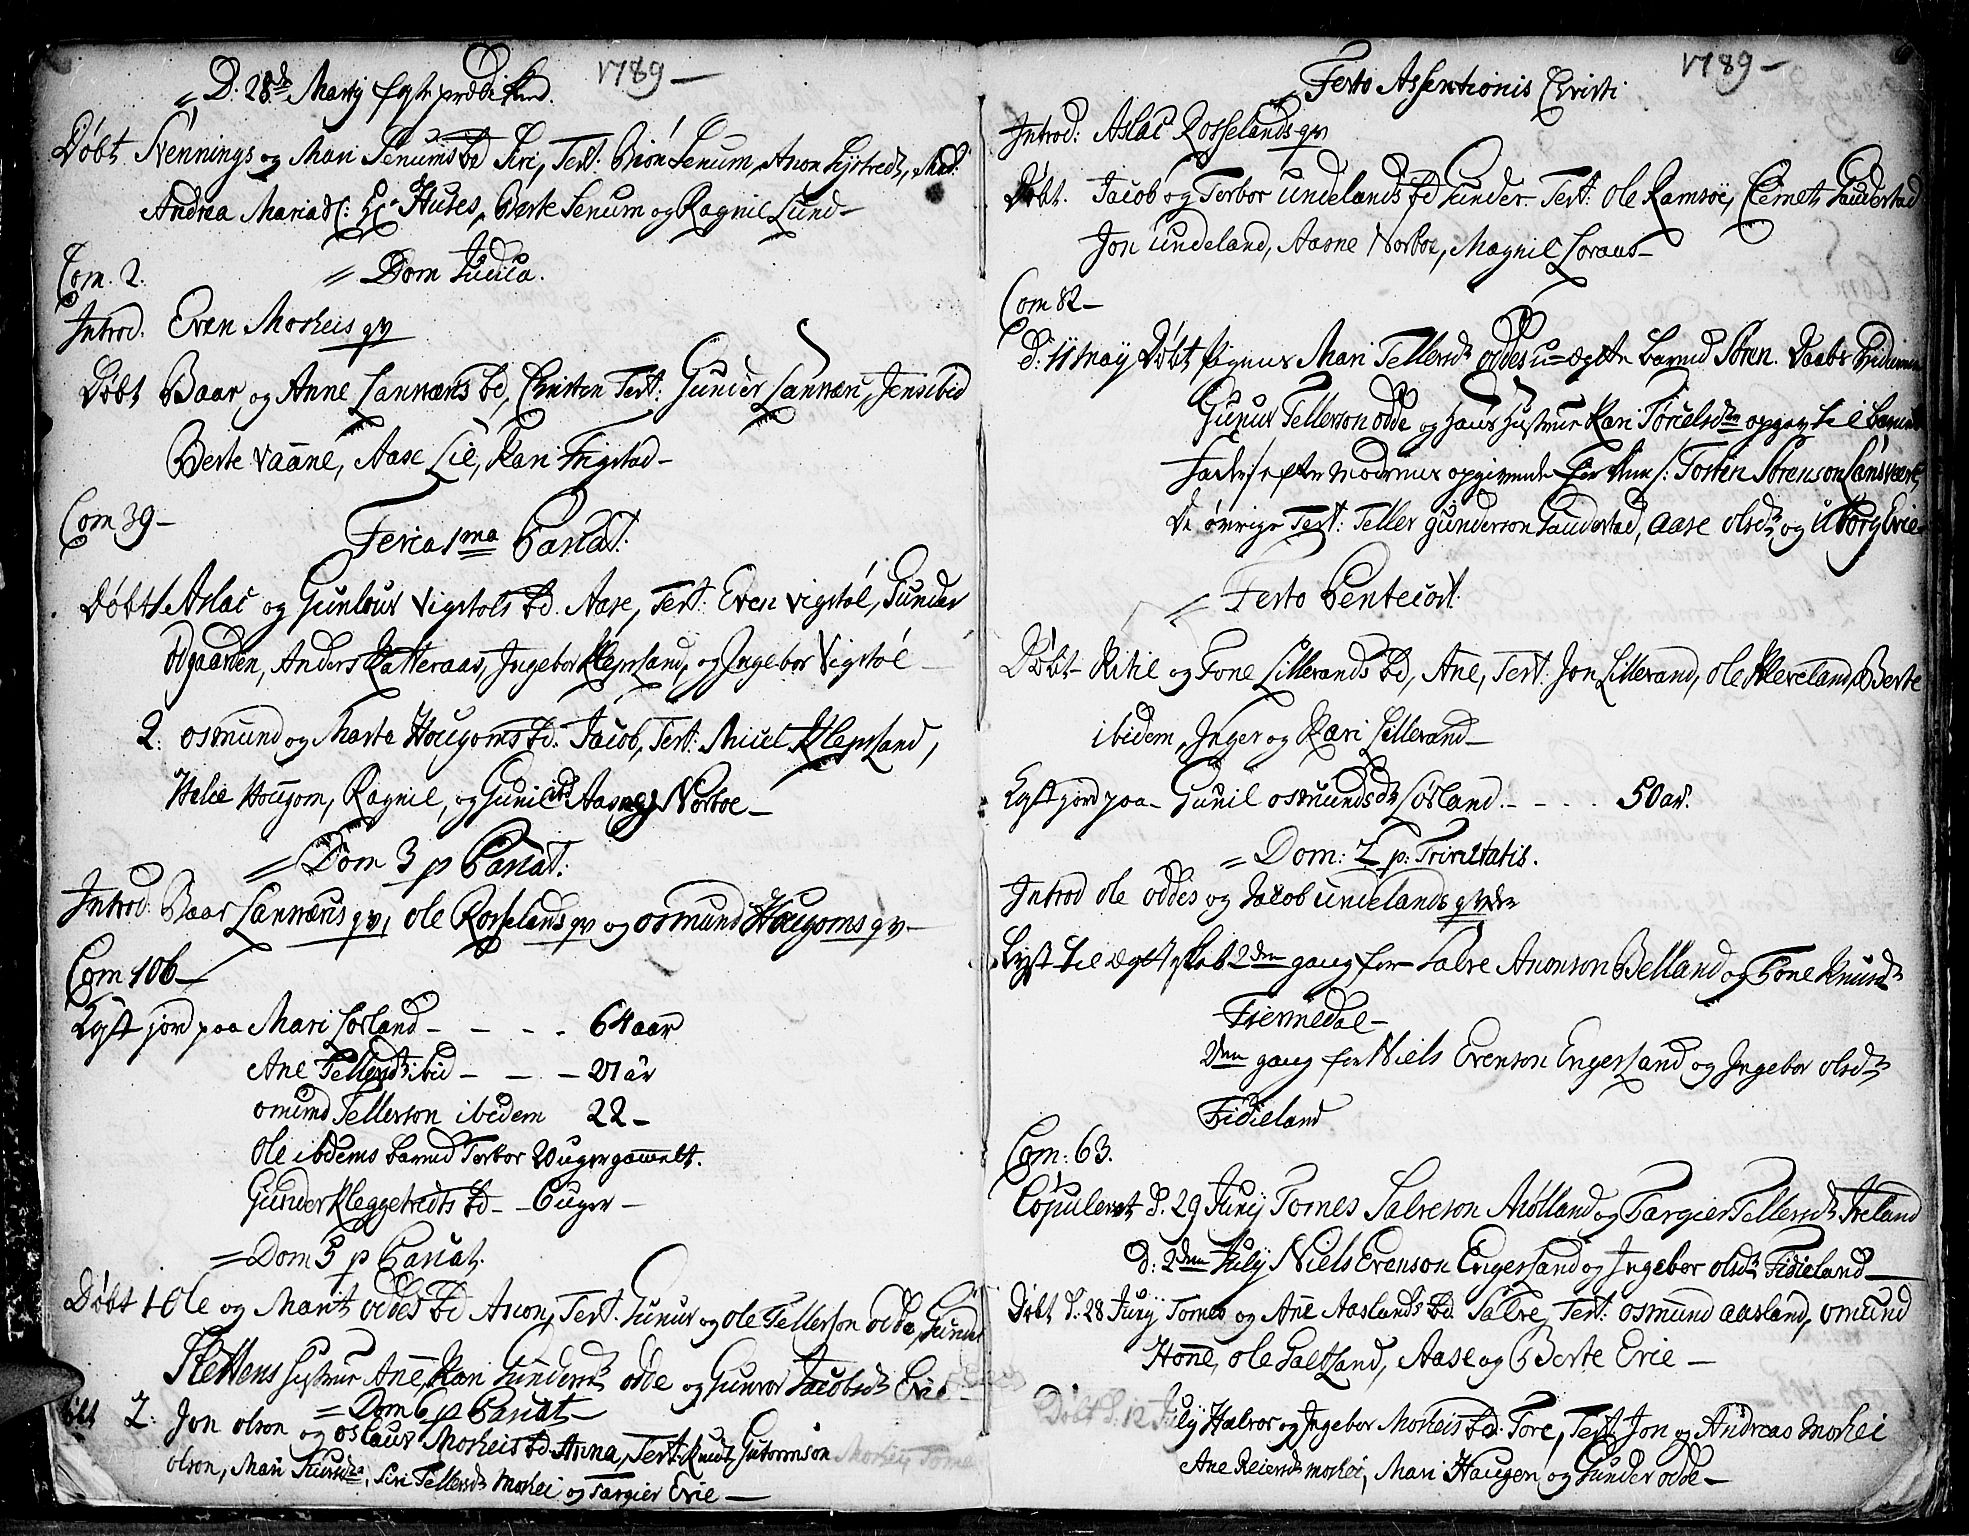 1789 –
D. 28de Martij
Døbt Svennings og Mari Senums bd Siri, Test: Biøn Senum, Anon
Andrea Maria Huses, Berte Senum og Ragnil Lund –
Com. 2. Dom Judica.
Introd. Even Moseis qv
Døbt Baar og Anne Lannæss bd, Christen Test: Gunder Lannæs, Jens ibid
Berte Vaane, Aase Lie, Kari Frigstad –
Com 39 –
Feria 1ma Pascat.
Døbt 1. Aslac og Gunlour Vigstøls bd. Aase, Test: Even Vigstøl, Gunder
Odgaarden, Anders Katteraas, Ingebor Klepsland, og Ingebor Vigstøl –
2. Osmund og Marta Hougoms bd. Jacob, Test: Micel Klepsland,
Helie Hougom, Ragnil, og Gunil ibid Aasne Norboe –
Dom 3 p Pascat.
Introd. Baar Lannæss qv, Ole Rosselands qv og Osmund Hougoms qv –
Com 106 –
Kyst jord paa Mari Sørland – – – – 64 aar
Ane Tellersdtr ibid – – – 21 år
Omund Tellerson ibidem 22 –
Ole ibdems barnd Torbor 20 uger gammelt.
Gunder Kleggetvedts bd – – 6 uger –
Dom 5 p Pascat.
Døbt 1 Ole og Marit Oddes bd Anon, Test: Gunur og Ole Tellerson Odde, Gunder
Slettens Hustrue Ane, Kari Gundersdtr Odde og Gunvor Jacobsdtr Evie
Dom 6 p Pascat –
Døbt 2. Jon Olson og Oslaur Moseis bd. Anna, Test: Knud Guttormson Moseij Tome
Olson, Mari, Siri Tellersdtr Mosei og Targier Evie –
1789 –
Festo Assentionis Christi
Introd: Aslac Rosselands qv
Døbt. Jacob og Torbor Undelands bd Gunder. Test: Ole Ramsøe, Clemet Gaudestad
Jon Undeland, Aasne Norboe, Magnil Loraas –
Com 82 –
d: 11 Maij Døbt Mari Tellersdtr Oddes u-ægte barnd Søren. Daabs
Gunur Tellerson Odde og Hans Hustrue Kari
Fader efter Moderens opgivende
De øvrige Test: Teller Gunderson Gaudestad, Aase Olsdtr og Evie –
Festo Pentecost.
Døbt Kitil og Tone Lillerands bd, Ane, Test: Jon Lillerand, Ole Kleveland, Berte
ibidem, Inger og Kari Lillerand –
Kyst jord paa – Gunil Osmundsdtr Sørland. – – – – 50 ar.
Dom: 2 p: Trinitatis.
Introd Ole Oddes og Jacob Undelands
Lyst til ægteskab 2den gang for Salve Anonson Belland og Tone Knudsdtr
Fiermedal –
2den gang for Niels Evenson Engesland og Ingebor Olsdtr
Fidieland
Com: 63.
Copuleret d. 29 Junij Tomes Salveson Mølland og Targier Tellersdtr Ireland
d: 2den Julij Niels Evenson Engesland og Ingebor Olsdtr Fidieland –
Døbt d. 28 Junij Tomes og Ane Aaslands bd. Salve, Test: Osmund Aasland, Omund
Honne, Ole Galtsand, Aase og Berte Evie –
Døbt d. 12 Julij Halvor og Ingebor Moseis bd. Tore, Test Jon og Andreas Mosei
Ane Reiersdtr Mosei, Mari Haugen og Gunder Odde –